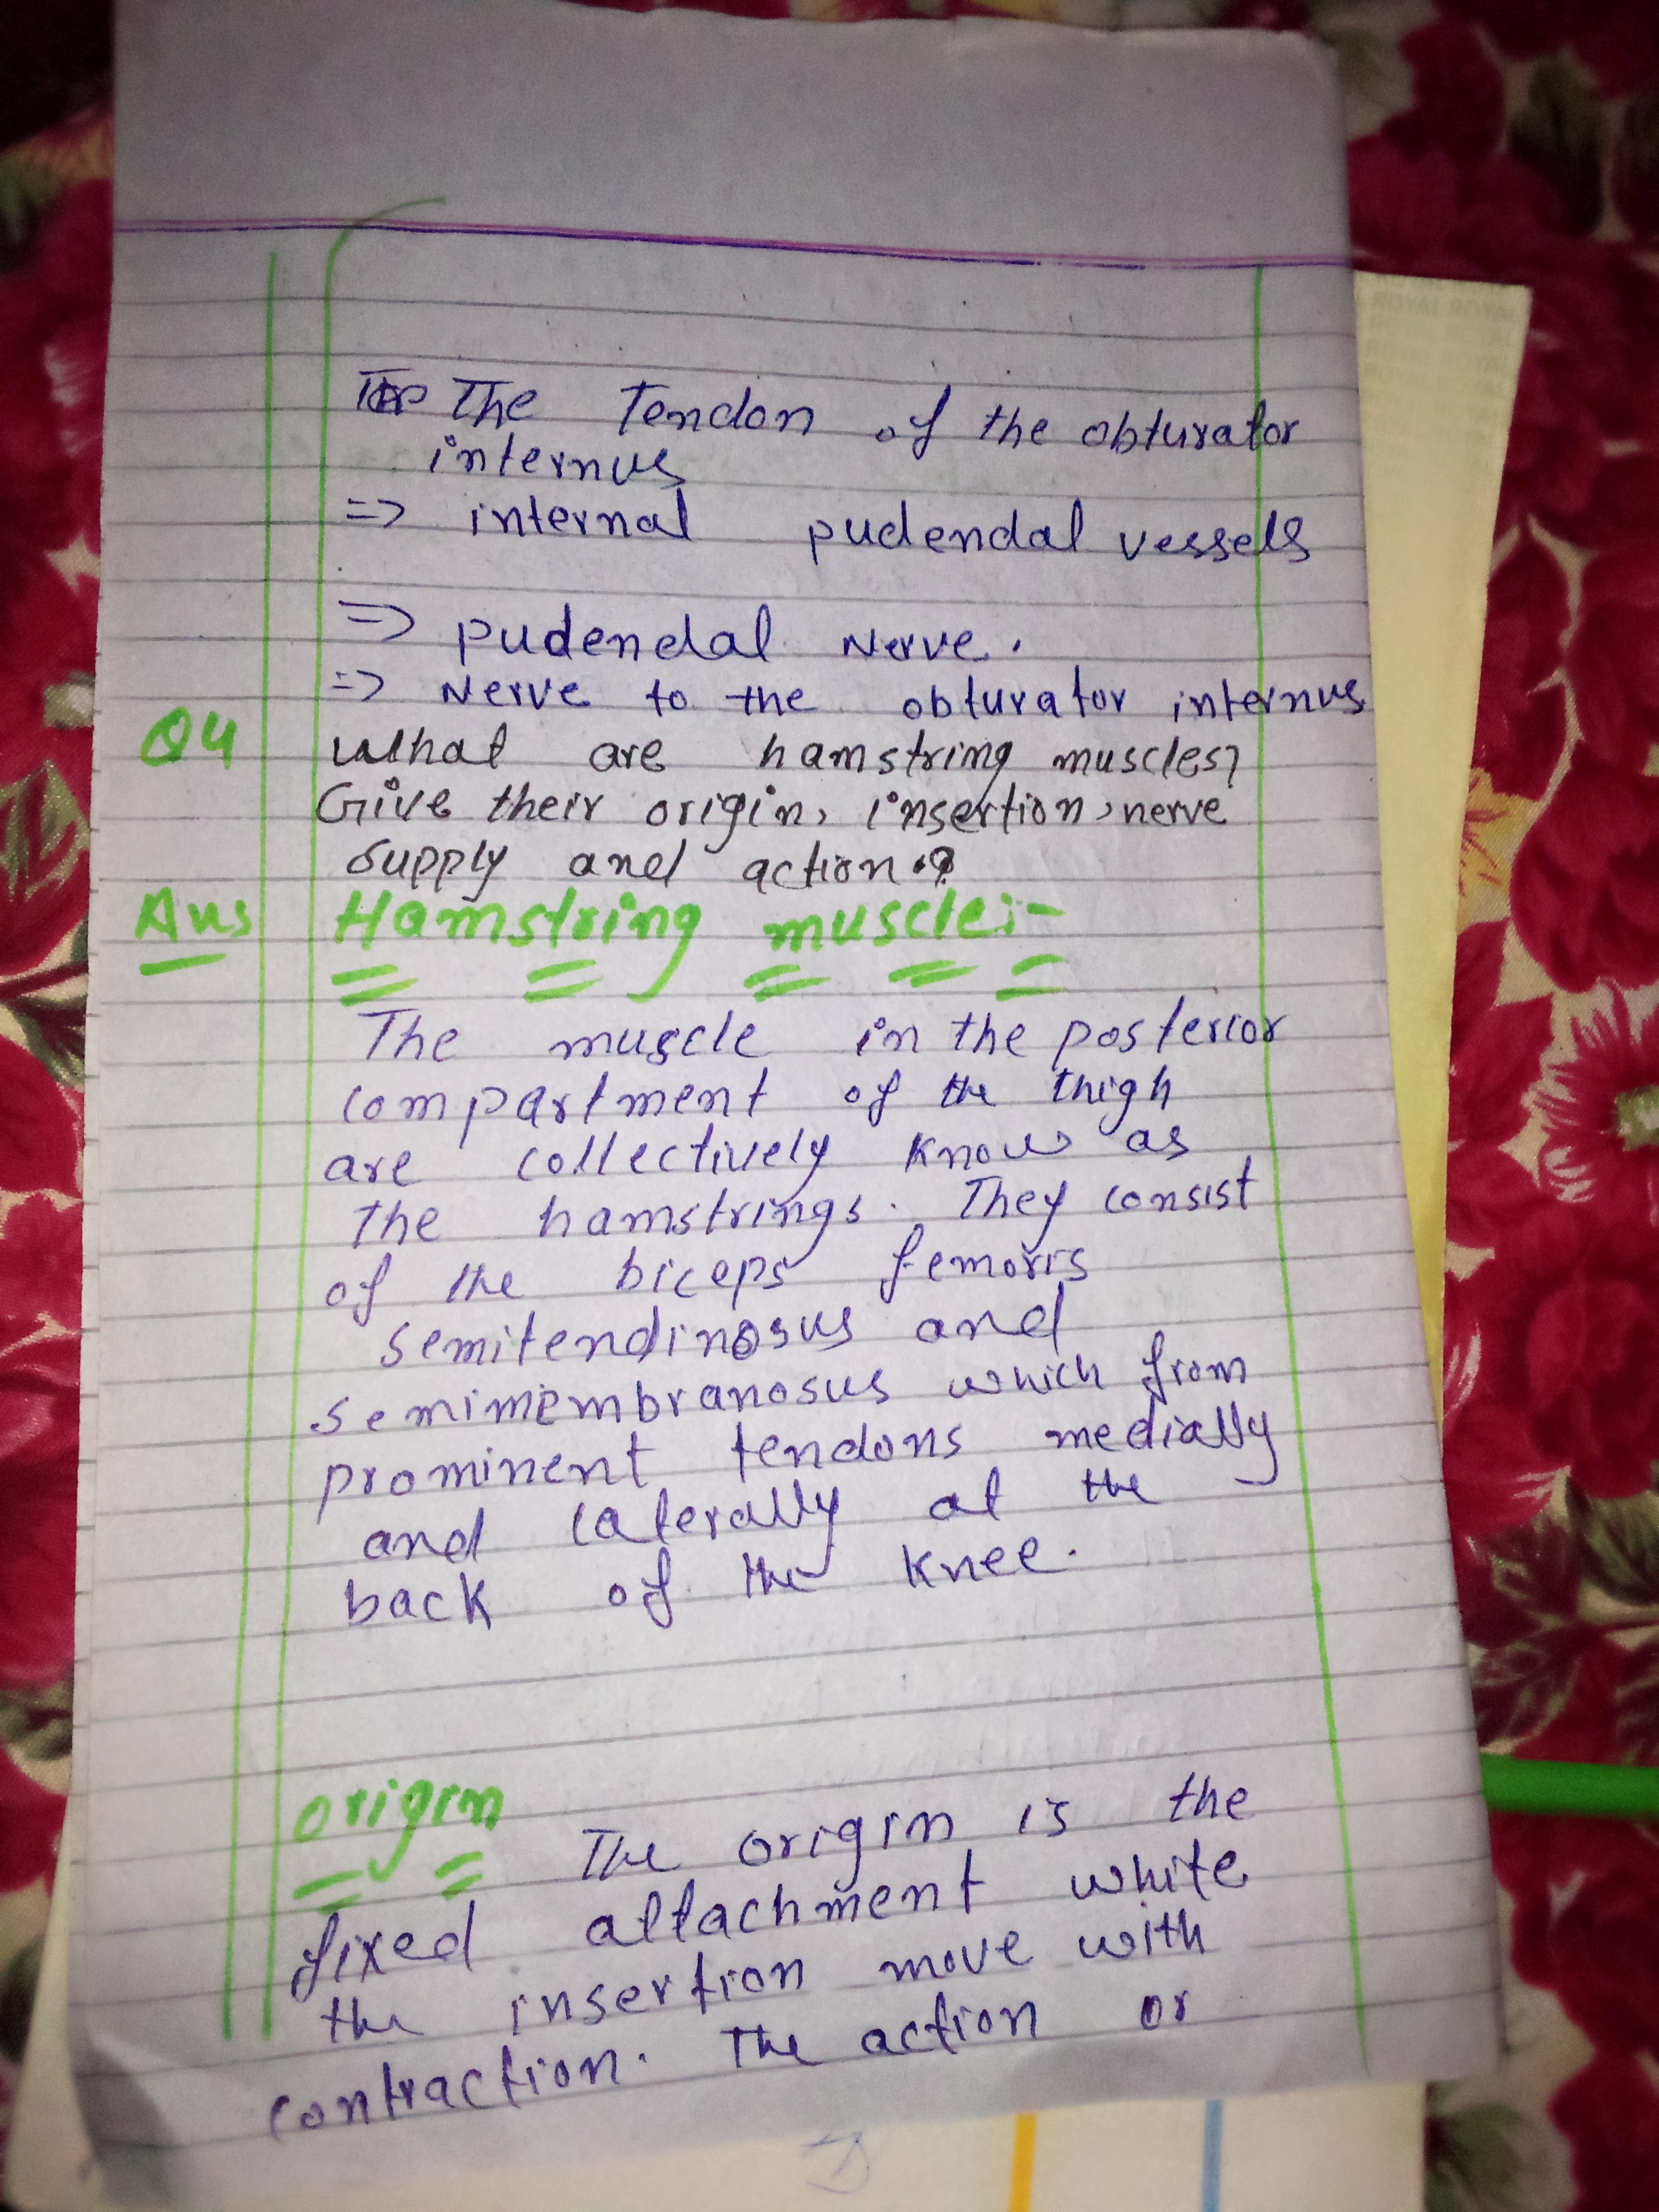 The Tendon of the obturator
internus
=> internal pudendal vessels
=> pudendal Nerve.
=> Nerve to the obturator internus
Q4 What are hamstring muscles?
Give their origin, insertion, nerve
supply and action.?
Ans Hamstring muscle:-
The muscle in the posterior
compartment of the thigh
are collectively know as
the hamstrings. They consist
of the biceps femoris
semitendinosus and
semimembranosus which from
prominent tendons medially
and laterally at the
back of the knee.
origin The origin is the
fixed attachment white
the insertion move with
contraction. The action or